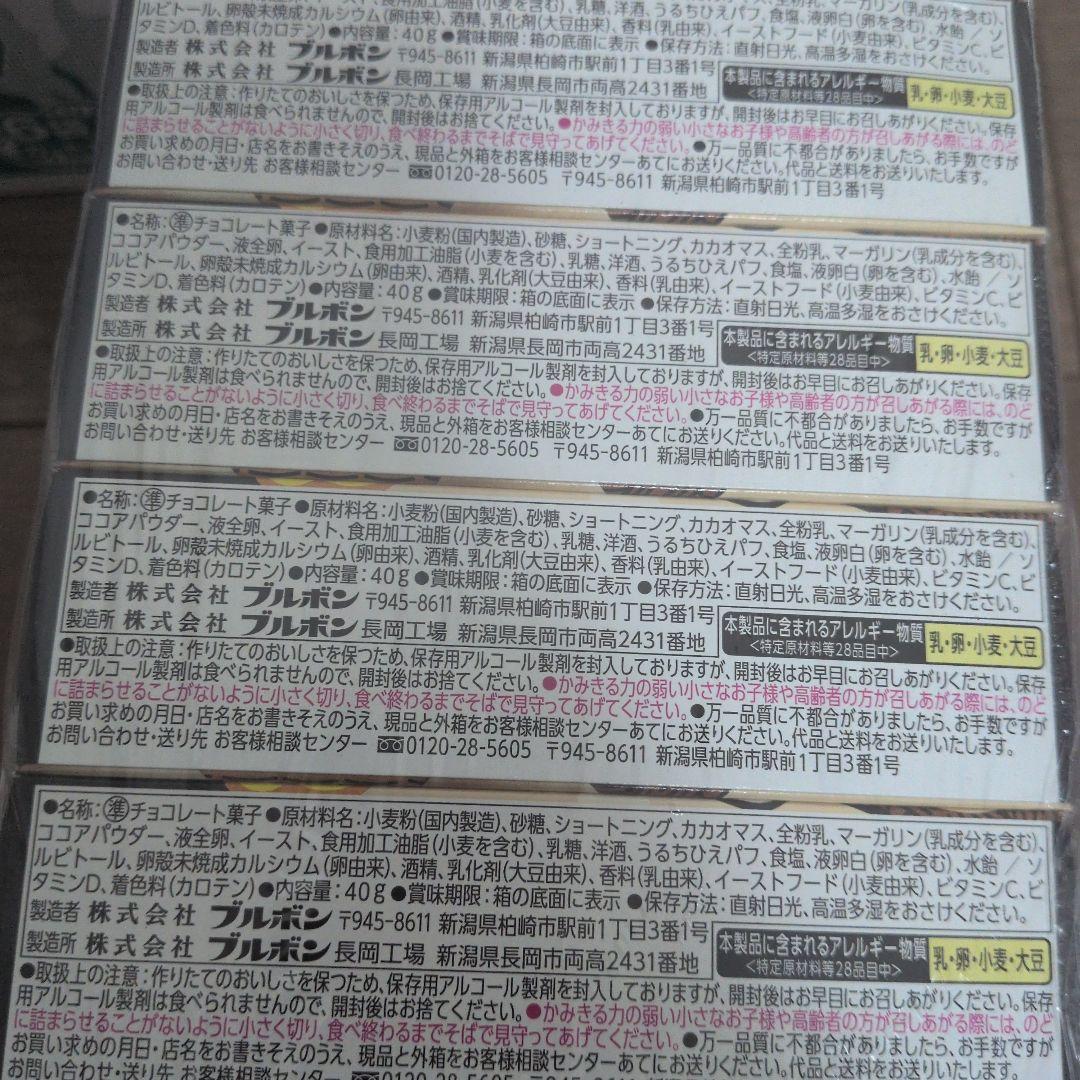 ココアパウダー、液全卵、イースト、食用加工油脂(小麦を含む)、乳糖、洋酒、うるちひえパフ、食塩、液卵白(卵を含む)、水飴／ソ
ルビトール、卵殻未焼成カルシウム(卵由来)、酒精、乳化剤(大豆由来)、香料(乳由来)、イーストフード(小麦由来)、ビタミンC、ビ
タミンD、着色料(カロテン)●内容量：40g●賞味期限：箱の底面に表示●保存方法：直射日光、高温多湿をおさけください。
製造者 株式会社 ブルボン 〒945-8611 新潟県柏崎市駅前1丁目3番1号
製造所 株式会社 ブルボン 長岡工場 新潟県長岡市両高2431番地
本製品に含まれるアレルギー物質
<特定原材料等28品目中>
乳・卵・小麦・大豆
●取扱上の注意：作りたてのおいしさを保つため、保存用アルコール製剤を封入しておりますが、開封後はお早目にお召しあがりください。保存
用アルコール製剤は食べられませんので、開封後はお捨てください。●かみきる力の弱い小さなお子様や高齢者の方が召しあがる際には、のど
に詰まらせることがないように小さく切り、食べ終わるまでそばで見守ってあげてください。●万一品質に不都合がありましたら、お手数ですが
お買い求めの月日・店名をお書きそえのうえ、現品と外箱をお客様相談センターあてにお送りください。代品と送料をお送りいたします。
お問い合わせ・送り先 お客様相談センター 0120-28-5605 〒945-8611 新潟県柏崎市駅前1丁目3番1号
●名称：準チョコレート菓子●原材料名：小麦粉(国内製造)、砂糖、ショートニング、カカオマス、全粉乳、マーガリン(乳成分を含む)、
ココアパウダー、液全卵、イースト、食用加工油脂(小麦を含む)、乳糖、洋酒、うるちひえパフ、食塩、液卵白(卵を含む)、水飴／ソ
ルビトール、卵殻未焼成カルシウム(卵由来)、酒精、乳化剤(大豆由来)、香料(乳由来)、イーストフード(小麦由来)、ビタミンC、ビ
タミンD、着色料(カロテン)●内容量：40g●賞味期限：箱の底面に表示●保存方法：直射日光、高温多湿をおさけください。
製造者 株式会社 ブルボン 〒945-8611 新潟県柏崎市駅前1丁目3番1号
製造所 株式会社 ブルボン 長岡工場 新潟県長岡市両高2431番地
本製品に含まれるアレルギー物質
<特定原材料等28品目中>
乳・卵・小麦・大豆
●取扱上の注意：作りたてのおいしさを保つため、保存用アルコール製剤を封入しておりますが、開封後はお早目にお召しあがりください。保存
用アルコール製剤は食べられませんので、開封後はお捨てください。●かみきる力の弱い小さなお子様や高齢者の方が召しあがる際には、のど
に詰まらせることがないように小さく切り、食べ終わるまでそばで見守ってあげてください。●万一品質に不都合がありましたら、お手数ですが
お買い求めの月日・店名をお書きそえのうえ、現品と外箱をお客様相談センターあてにお送りください。代品と送料をお送りいたします。
お問い合わせ・送り先 お客様相談センター 0120-28-5605 〒945-8611 新潟県柏崎市駅前1丁目3番1号
●名称：準チョコレート菓子●原材料名：小麦粉(国内製造)、砂糖、ショートニング、カカオマス、全粉乳、マーガリン(乳成分を含む)、
ココアパウダー、液全卵、イースト、食用加工油脂(小麦を含む)、乳糖、洋酒、うるちひえパフ、食塩、液卵白(卵を含む)、水飴／ソ
ルビトール、卵殻未焼成カルシウム(卵由来)、酒精、乳化剤(大豆由来)、香料(乳由来)、イーストフード(小麦由来)、ビタミンC、ビ
タミンD、着色料(カロテン)●内容量：40g●賞味期限：箱の底面に表示●保存方法：直射日光、高温多湿をおさけください。
製造者 株式会社 ブルボン 〒945-8611 新潟県柏崎市駅前1丁目3番1号
製造所 株式会社 ブルボン 長岡工場 新潟県長岡市両高2431番地
本製品に含まれるアレルギー物質
<特定原材料等28品目中>
乳・卵・小麦・大豆
●取扱上の注意：作りたてのおいしさを保つため、保存用アルコール製剤を封入しておりますが、開封後はお早目にお召しあがりください。保存
用アルコール製剤は食べられませんので、開封後はお捨てください。●かみきる力の弱い小さなお子様や高齢者の方が召しあがる際には、のど
に詰まらせることがないように小さく切り、食べ終わるまでそばで見守ってあげてください。●万一品質に不都合がありましたら、お手数ですが
お買い求めの月日・店名をお書きそえのうえ、現品と外箱をお客様相談センターあてにお送りください。代品と送料をお送りいたします。
お問い合わせ・送り先 お客様相談センター 0120-28-5605 〒945-8611 新潟県柏崎市駅前1丁目3番1号
●名称：準チョコレート菓子●原材料名：小麦粉(国内製造)、砂糖、ショートニング、カカオマス、全粉乳、マーガリン(乳成分を含む)、
ココアパウダー、液全卵、イースト、食用加工油脂(小麦を含む)、乳糖、洋酒、うるちひえパフ、食塩、液卵白(卵を含む)、水飴／ソ
ルビトール、卵殻未焼成カルシウム(卵由来)、酒精、乳化剤(大豆由来)、香料(乳由来)、イーストフード(小麦由来)、ビタミンC、ビ
タミンD、着色料(カロテン)●内容量：40g●賞味期限：箱の底面に表示●保存方法：直射日光、高温多湿をおさけください。
製造者 株式会社 ブルボン 〒945-8611 新潟県柏崎市駅前1丁目3番1号
製造所 株式会社 ブルボン 長岡工場 新潟県長岡市両高2431番地
本製品に含まれるアレルギー物質
<特定原材料等28品目中>
乳・卵・小麦・大豆
●取扱上の注意：作りたてのおいしさを保つため、保存用アルコール製剤を封入しておりますが、開封後はお早目にお召しあがりください。保存
用アルコール製剤は食べられませんので、開封後はお捨てください。●かみきる力の弱い小さなお子様や高齢者の方が召しあがる際には、のど
に詰まらせることがないように小さく切り、食べ終わるまでそばで見守ってあげてください。●万一品質に不都合がありましたら、お手数ですが
お買い求めの月日・店名をお書きそえのうえ、現品と外箱をお客様相談センターあてにお送りください。代品と送料をお送りいたします。
お問い合わせ・送り先 お客様相談センター 0120-28-5605